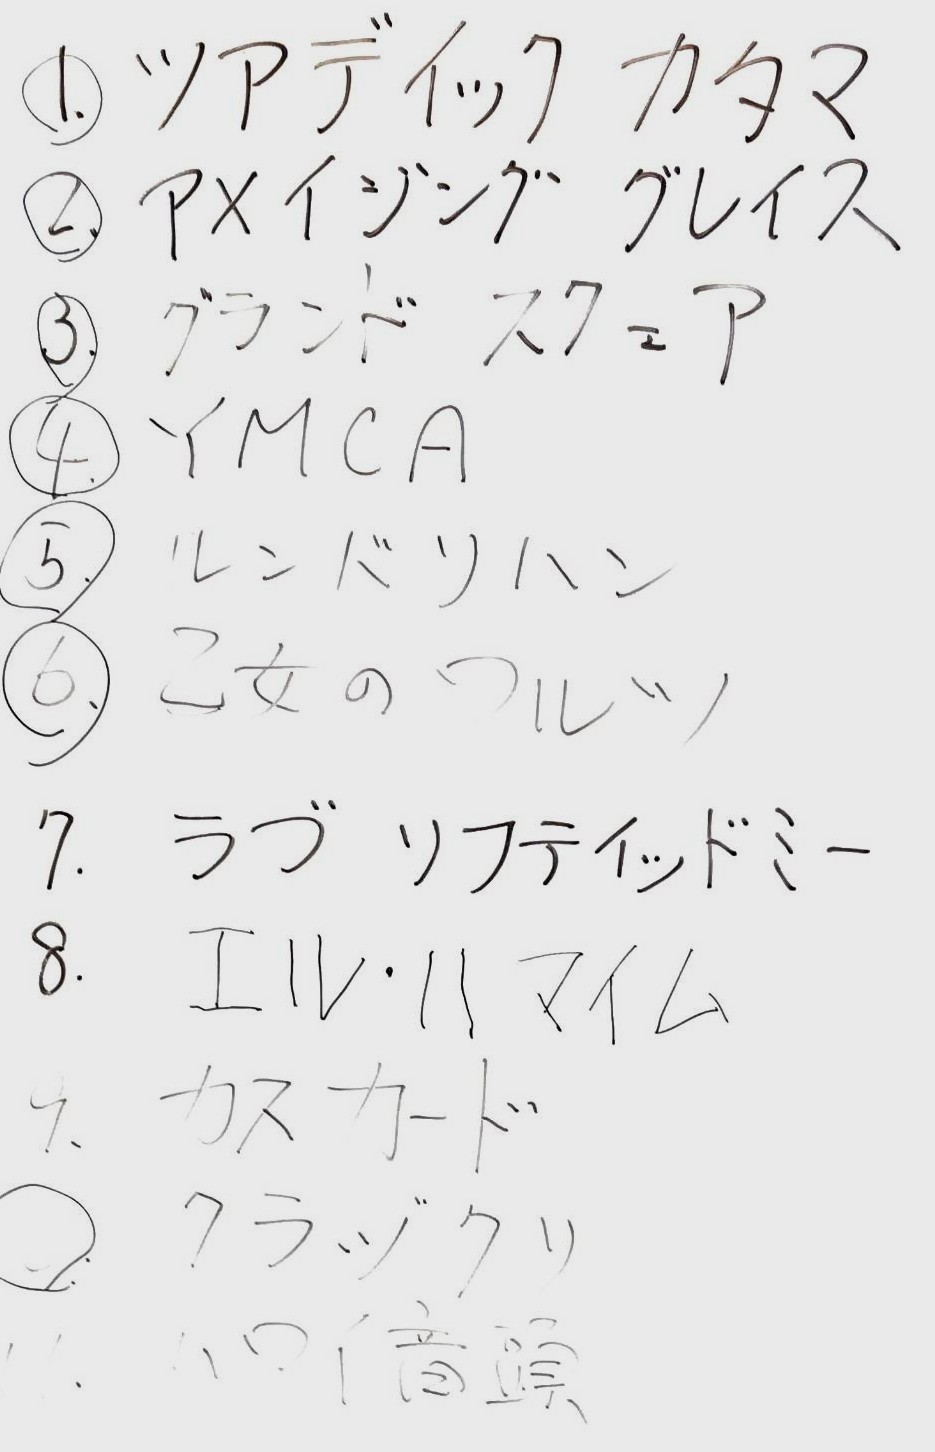 1. ツアディック カタマ
2. アメイジング グレイス
3. グランド スクェア
4. YMCA
5. ルンドリハン
6. 乙女のワルツ
7. ラブ リフティッドミー
8. エル・ハマイム
9. カスカード
クラッヅクリ
11. ハワイ音頭